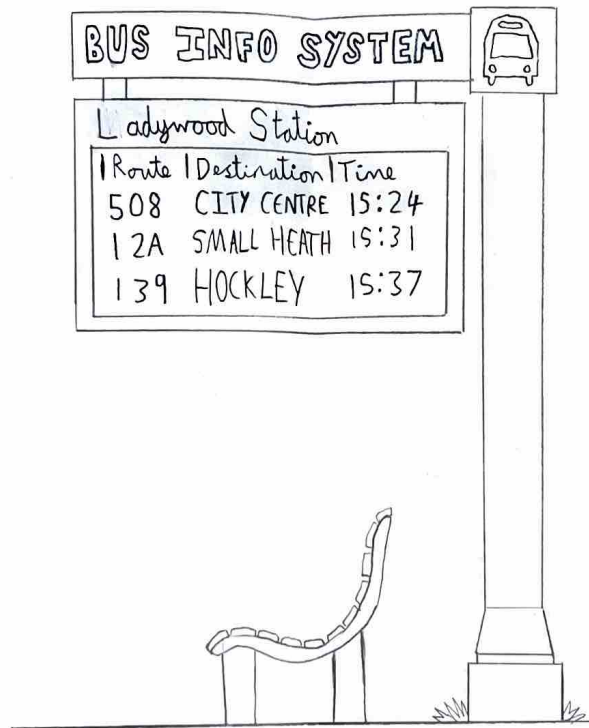 BUS INFO SYSTEM
Ladywood Station
|Route |Destination|Time
508 CITY CENTRE 15:24
12A SMALL HEATH 15:31
139 HOCKLEY 15:37